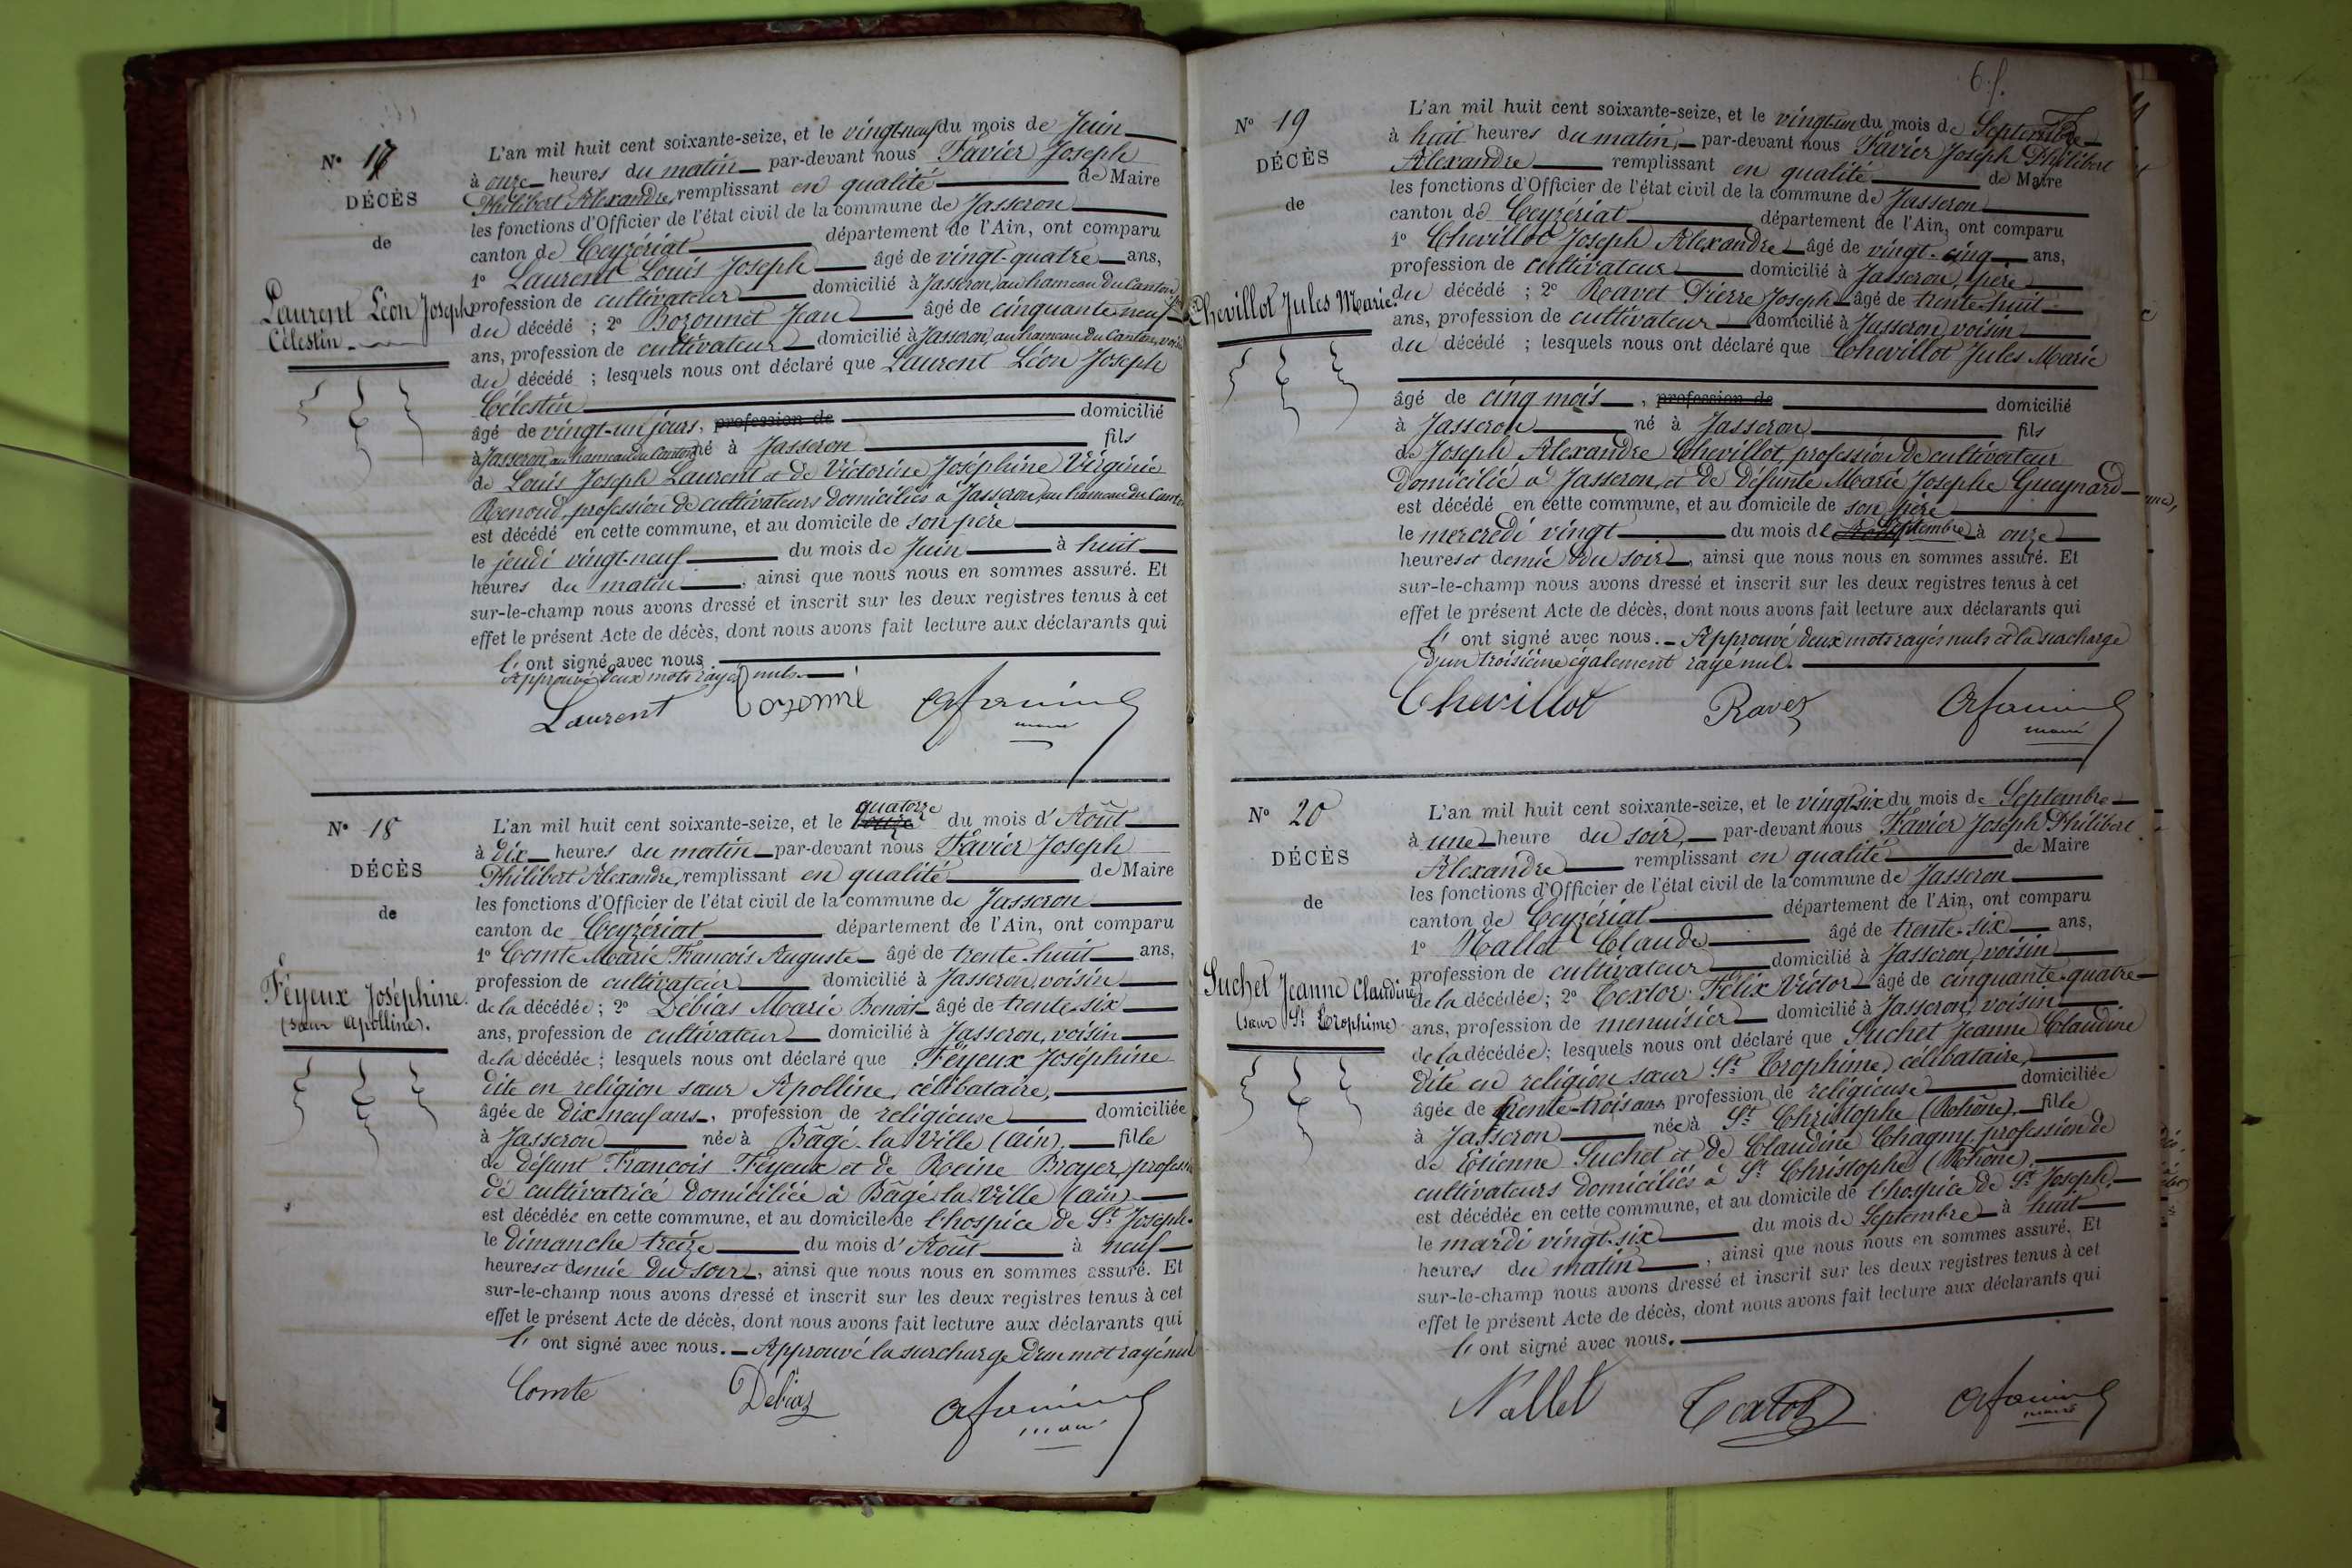 N° 17
DÉCÈS
de
Laurent Léon Joseph
Célestin.
L'an mil huit cent soixante-seize, et le vingt-neuf du mois de Juin
à onze heures du matin par-devant nous Favier Joseph
Philibert Alexandre, remplissant en qualité de Maire
les fonctions d'Officier de l'état civil de la commune de Jasseron
canton de Ceyzériat département de l'Ain, ont comparu
1° Laurent Louis Joseph âgé de vingt-quatre ans,
profession de cultivateur domicilié à Jasseron, au hameau du Canton,
du décédé ; 2° Bozonnet Jean âgé de cinquante-neuf
ans, profession de cultivateur domicilié à Jasseron, au hameau du Canton, voisin
du décédé ; lesquels nous ont déclaré que Laurent Léon Joseph
Célestin
âgé de vingt-un jours, profession de domicilié
à Jasseron, au hameau du Canton né à Jasseron fils
de Louis Joseph Laurent et de Victorine Joséphine Virginie
Renoud, profession de cultivateurs domiciliés à Jasseron, au hameau du Canton
est décédé en cette commune, et au domicile de son père
le jeudi vingt-neuf du mois de Juin à huit
heures du matin, ainsi que nous nous en sommes assuré. Et
sur-le-champ nous avons dressé et inscrit sur les deux registres tenus à cet
effet le présent Acte de décès, dont nous avons fait lecture aux déclarants qui
l'ont signé avec nous
Approuvé deux mots rayés nuls.
Laurent Bozonné
N° 18
DÉCÈS
de
Féyeux Joséphine.
(sœur Apolline).
quatorze
L'an mil huit cent soixante-seize, et le treize du mois d'Août
à dix heures du matin par-devant nous Favier Joseph
Philibert Alexandre, remplissant en qualité de Maire
les fonctions d'Officier de l'état civil de la commune de Jasseron
canton de Ceyzériat département de l'Ain, ont comparu
1° Comte Marie François Auguste âgé de trente-huit ans,
profession de cultivateur domicilié à Jasseron, voisin
de la décédée ; 2° Débias Marie Benoit âgé de trente-six
ans, profession de cultivateur domicilié à Jasseron, voisin
de la décédée ; lesquels nous ont déclaré que Féyeux Joséphine
dite en religion sœur Apolline, célibataire,
âgée de dix neuf ans, profession de religieuse domiciliée
à Jasseron née à Bâgé-la-Ville (ain). fille
de défunt François Féyeux et de Reine Broyer, profession
de cultivatrice domiciliée à Bâgé-la-Ville (ain)
est décédée en cette commune, et au domicile de l'hospice de St Joseph.
le dimanche treize du mois d'Août à neuf
heures et demie du soir, ainsi que nous nous en sommes assuré. Et
sur-le-champ nous avons dressé et inscrit sur les deux registres tenus à cet
effet le présent Acte de décès, dont nous avons fait lecture aux déclarants qui
l'ont signé avec nous. Approuvé la surcharge d'un mot rayé nul
Comte Debias
N° 19
DÉCÈS
de
Chevillot Jules Marie.
L'an mil huit cent soixante-seize, et le vingt-un du mois de Septembre
à huit heures du matin, par-devant nous Favier Joseph Philibert
Alexandre remplissant en qualité de Maire
les fonctions d'Officier de l'état civil de la commune de Jasseron
canton de Ceyzériat département de l'Ain, ont comparu
1° Chevillot Joseph Alexandre âgé de vingt-cinq ans,
profession de cultivateur domicilié à Jasseron, père
du décédé ; 2° Ravet Pierre Joseph âgé de trente-huit
ans, profession de cultivateur domicilié à Jasseron, voisin
du décédé ; lesquels nous ont déclaré que Chevillot Jules Marie
âgé de cinq mois, profession de domicilié
à Jasseron né à Jasseron fils
de Joseph Alexandre Chevillot, profession de cultivateur
domicilié à Jasseron, et de défunte Marie Josephe Gueynard
est décédé en cette commune, et au domicile de son père
le mercredi vingt du mois de Septembre à onze
heures et demie du soir, ainsi que nous nous en sommes assuré. Et
sur-le-champ nous avons dressé et inscrit sur les deux registres tenus à cet
effet le présent Acte de décès, dont nous avons fait lecture aux déclarants qui
l'ont signé avec nous. Approuvé deux mots rayés nuls et la surcharge
d'un troisième également rayé nul.
Chevillot Ravet
N° 20
DÉCÈS
de
Suchet Jeanne Claudine
(sœur St Trophime)
L'an mil huit cent soixante-seize, et le vingt-six du mois de Septembre
à une heure du soir, par-devant nous Favier Joseph Philibert
Alexandre remplissant en qualité de Maire
les fonctions d'Officier de l'état civil de la commune de Jasseron
canton de Ceyzériat département de l'Ain, ont comparu
1° Nallet Claude âgé de trente-six ans,
profession de cultivateur domicilié à Jasseron, voisin
de la décédée ; 2° Textor Félix Victor âgé de cinquante-quatre
ans, profession de menuisier domicilié à Jasseron, voisin
de la décédée ; lesquels nous ont déclaré que Suchet Jeanne Claudine
dite en religion sœur St Trophime, célibataire,
âgée de trente-trois ans profession de religieuse domiciliée
à Jasseron née à St Christophe (Rhône). fille
de Etienne Suchet et de Claudine Chagny, profession de
cultivateurs domiciliés à St Christophe (Rhône),
est décédée en cette commune, et au domicile de l'hospice de St Joseph,
le mardi vingt-six du mois de Septembre à huit
heures du matin, ainsi que nous nous en sommes assuré. Et
sur-le-champ nous avons dressé et inscrit sur les deux registres tenus à cet
effet le présent Acte de décès, dont nous avons fait lecture aux déclarants qui
l'ont signé avec nous.
Nallet Textor